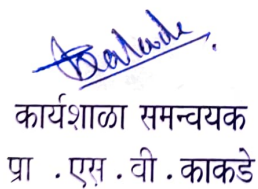 कार्यशाळा समन्वयक
प्रा .एस . वी . काकडे